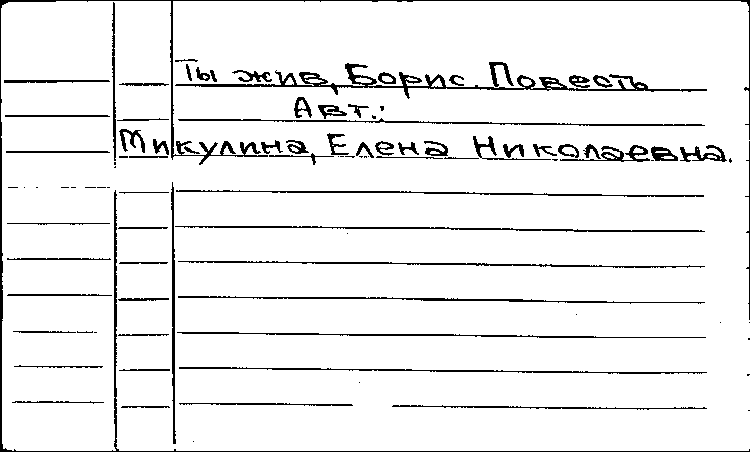 Ты жив, Борис. Повесть
Авт.:
Микулина, Елена Николаевна.